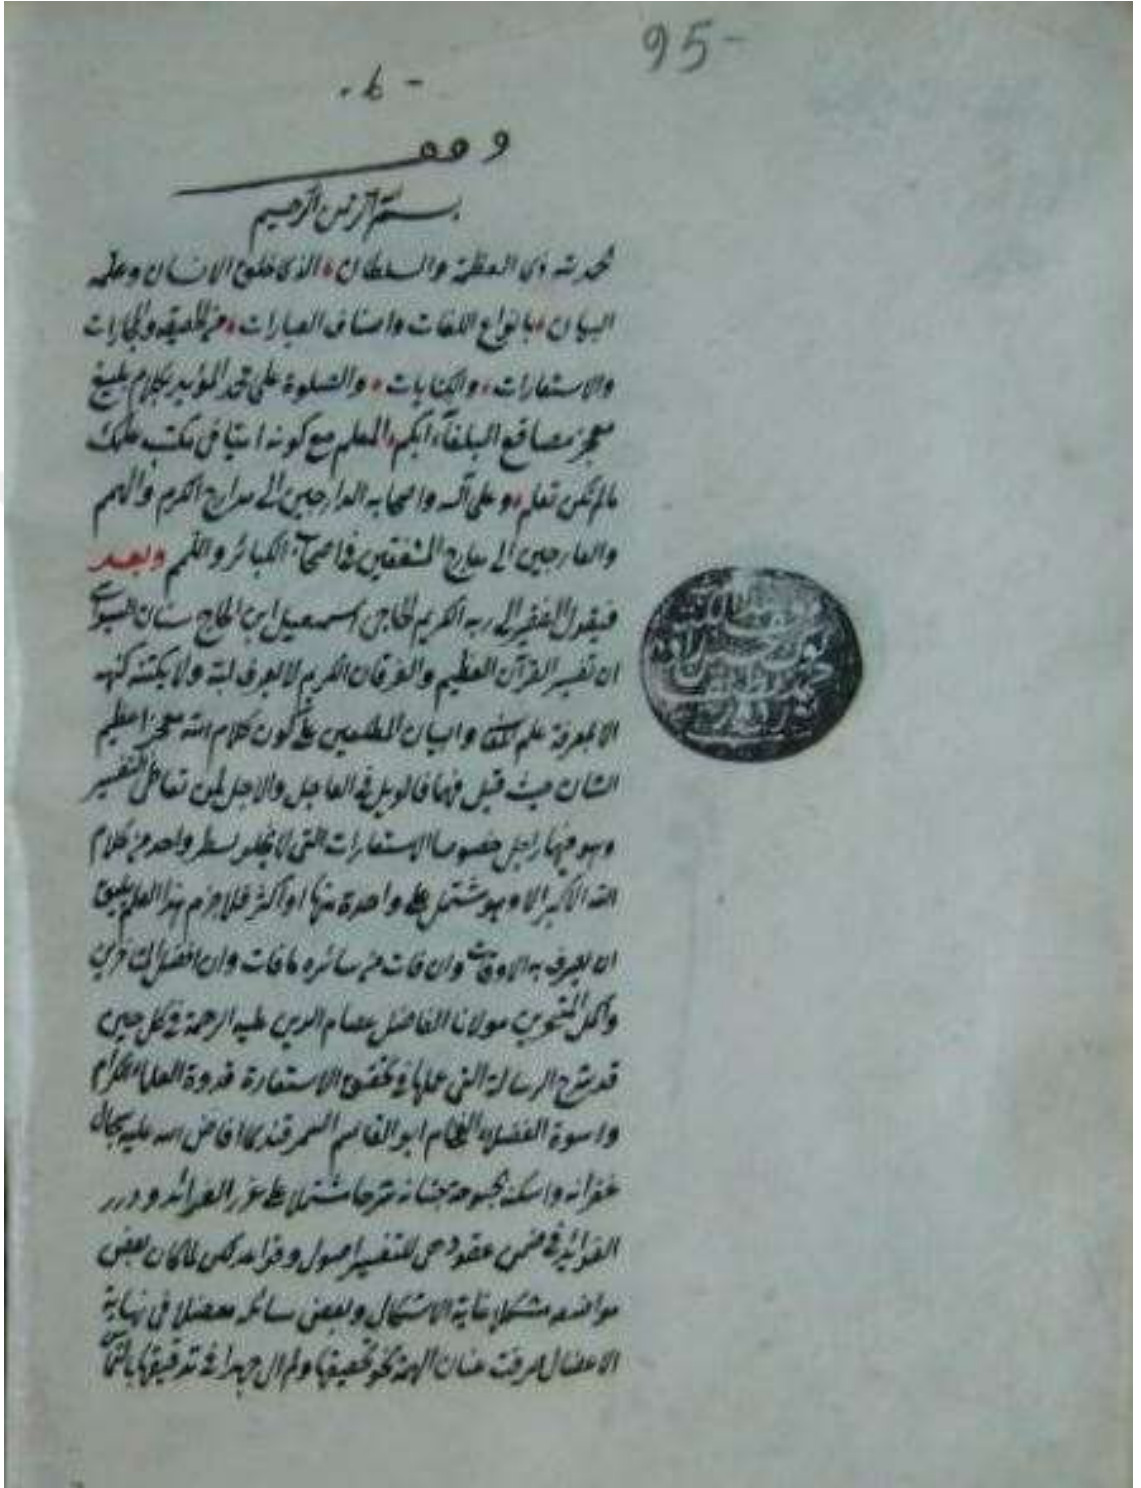 95-
وقف
بسم الله الرحمن الرحيم
نحمد لله ذى العظمة والسلطان الذى خلق الانسان وعلمه
البيان بانواع اللغات واصناف العبارات من الحقيقة والمجازات
والاستعارات والكنايات والصلوة على محمد المؤيد بكلام بليغ
معجز مصاقع البلغاء ابكم المعلم مع كونه اميا فى علمك
مالم تكن تعلم وعلى آله واصحابه الدارجين الى مدارج الكرم والهمم
والعارجين الى معارج المشفقين فى اصحاب الكبائر واللمم وبعد
فيقول الفقير الى ربه الكريم الحاجى اسمعيل ابن الحاج سنان السيواسى
ان تفسير القرآن العظيم والفرقان الكريم لا يعرف لبّه ولا يكتنه كنهه
الا بمعرفة علم والبيان المطلعين على كون كلام الله معجزا عظيم
الشان حيث قيل فيهما فالويل فى العاجل والاجل لمن تعاطى التفسير
وهو فيهما راجل خصوصا الاستعارات التى لا يخلو سطر واحد من كلام
الله الاكبر الا وهو مشتمل على واحدة منها او اكثر فلا جرم هذا العلم يليق
ان يصرف به الاوقات وان فات من سائره ما فات وان افضل المتأخرين
واكمل المتبحرين مولانا الفاضل عصام الدين عليه الرحمة فى كل حين
قد شرح الرسالة التى عملها فى تحقيق الاستعارة قدوة العلماء الكرام
واسوة الفضلاء الفخام ابو القاسم السمرقندى افاض الله عليه سجال
غفرانه واسكنه بحبوحة جنانه شرحا مشتملا على غرر الفرائد ودرر
الفوائد فى ضمن عقود هى للتفسير اصول وقواعد لكن لما كان بعض
مواضعه مشكلا غاية الاشكال وبعض مسائله معضلا فى نهاية
الاعضال صرفت عنان الهمة نحو تحقيقها ولم ال جهدا فى تدقيقها